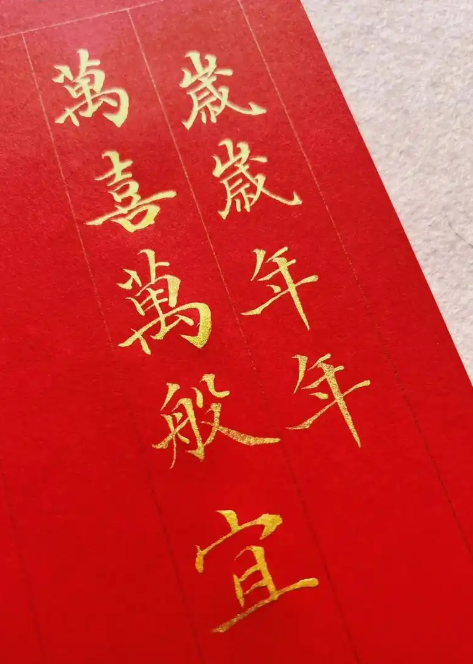 歲歲年年
萬喜萬般宜